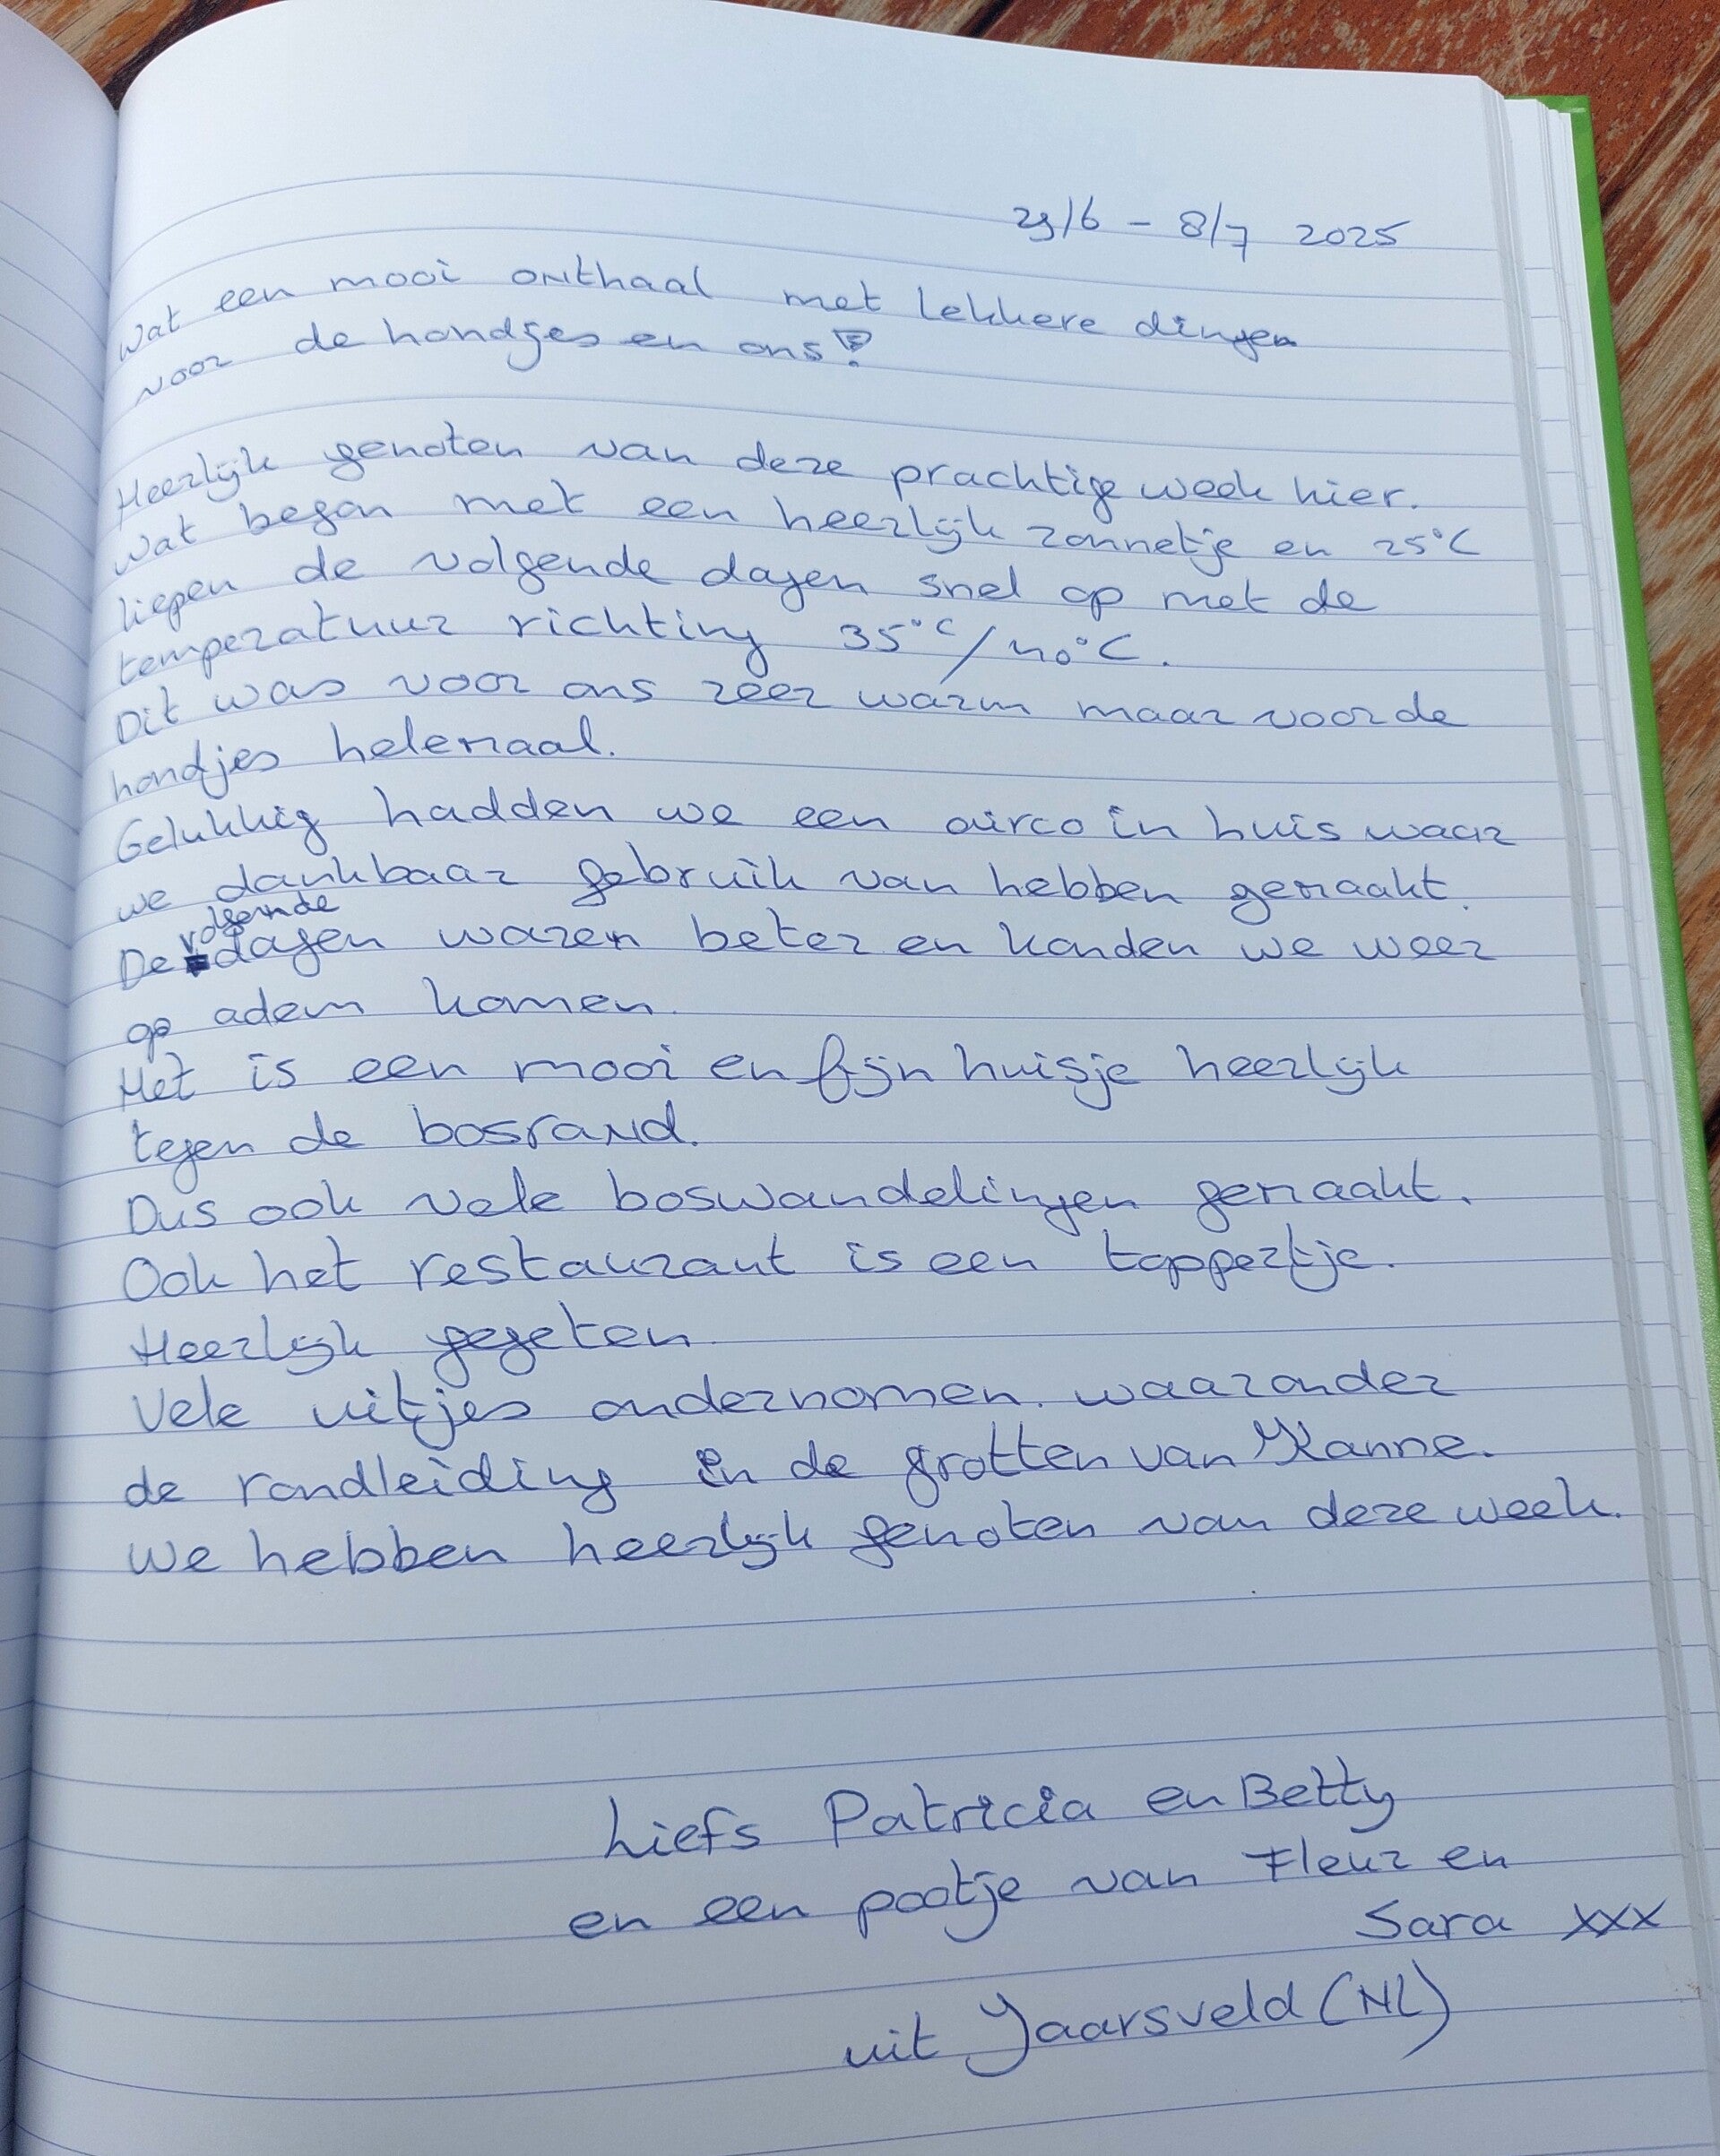 29/6 - 8/7 2025
Wat een mooi onthaal met lekkere dingen
voor de hondjes en ons!
Heerlijk genoten van deze prachtige week hier.
Wat begon met een heerlijk zonnetje en 25°C
liepen de volgende dagen snel op met de
temperatuur richting 35°C/40°C.
Dit was voor ons zeer warm maar voor de
hondjes helemaal.
Gelukkig hadden we een airco in huis waar
we dankbaar gebruik van hebben gemaakt.
De volgende dagen waren beter en konden we weer
op adem komen.
Het is een mooi en fijn huisje heerlijk
tegen de bosrand.
Dus ook vele boswandelingen gemaakt.
Ook het restaurant is een toppertje.
Heerlijk gegeten.
Vele uitjes ondernomen. waaronder
de rondleiding in de grotten van Kanne.
We hebben heerlijk genoten van deze week.
Liefs Patricia en Betty
en een pootje van Fleur en
Sara xxx
uit Jaarsveld (NL)